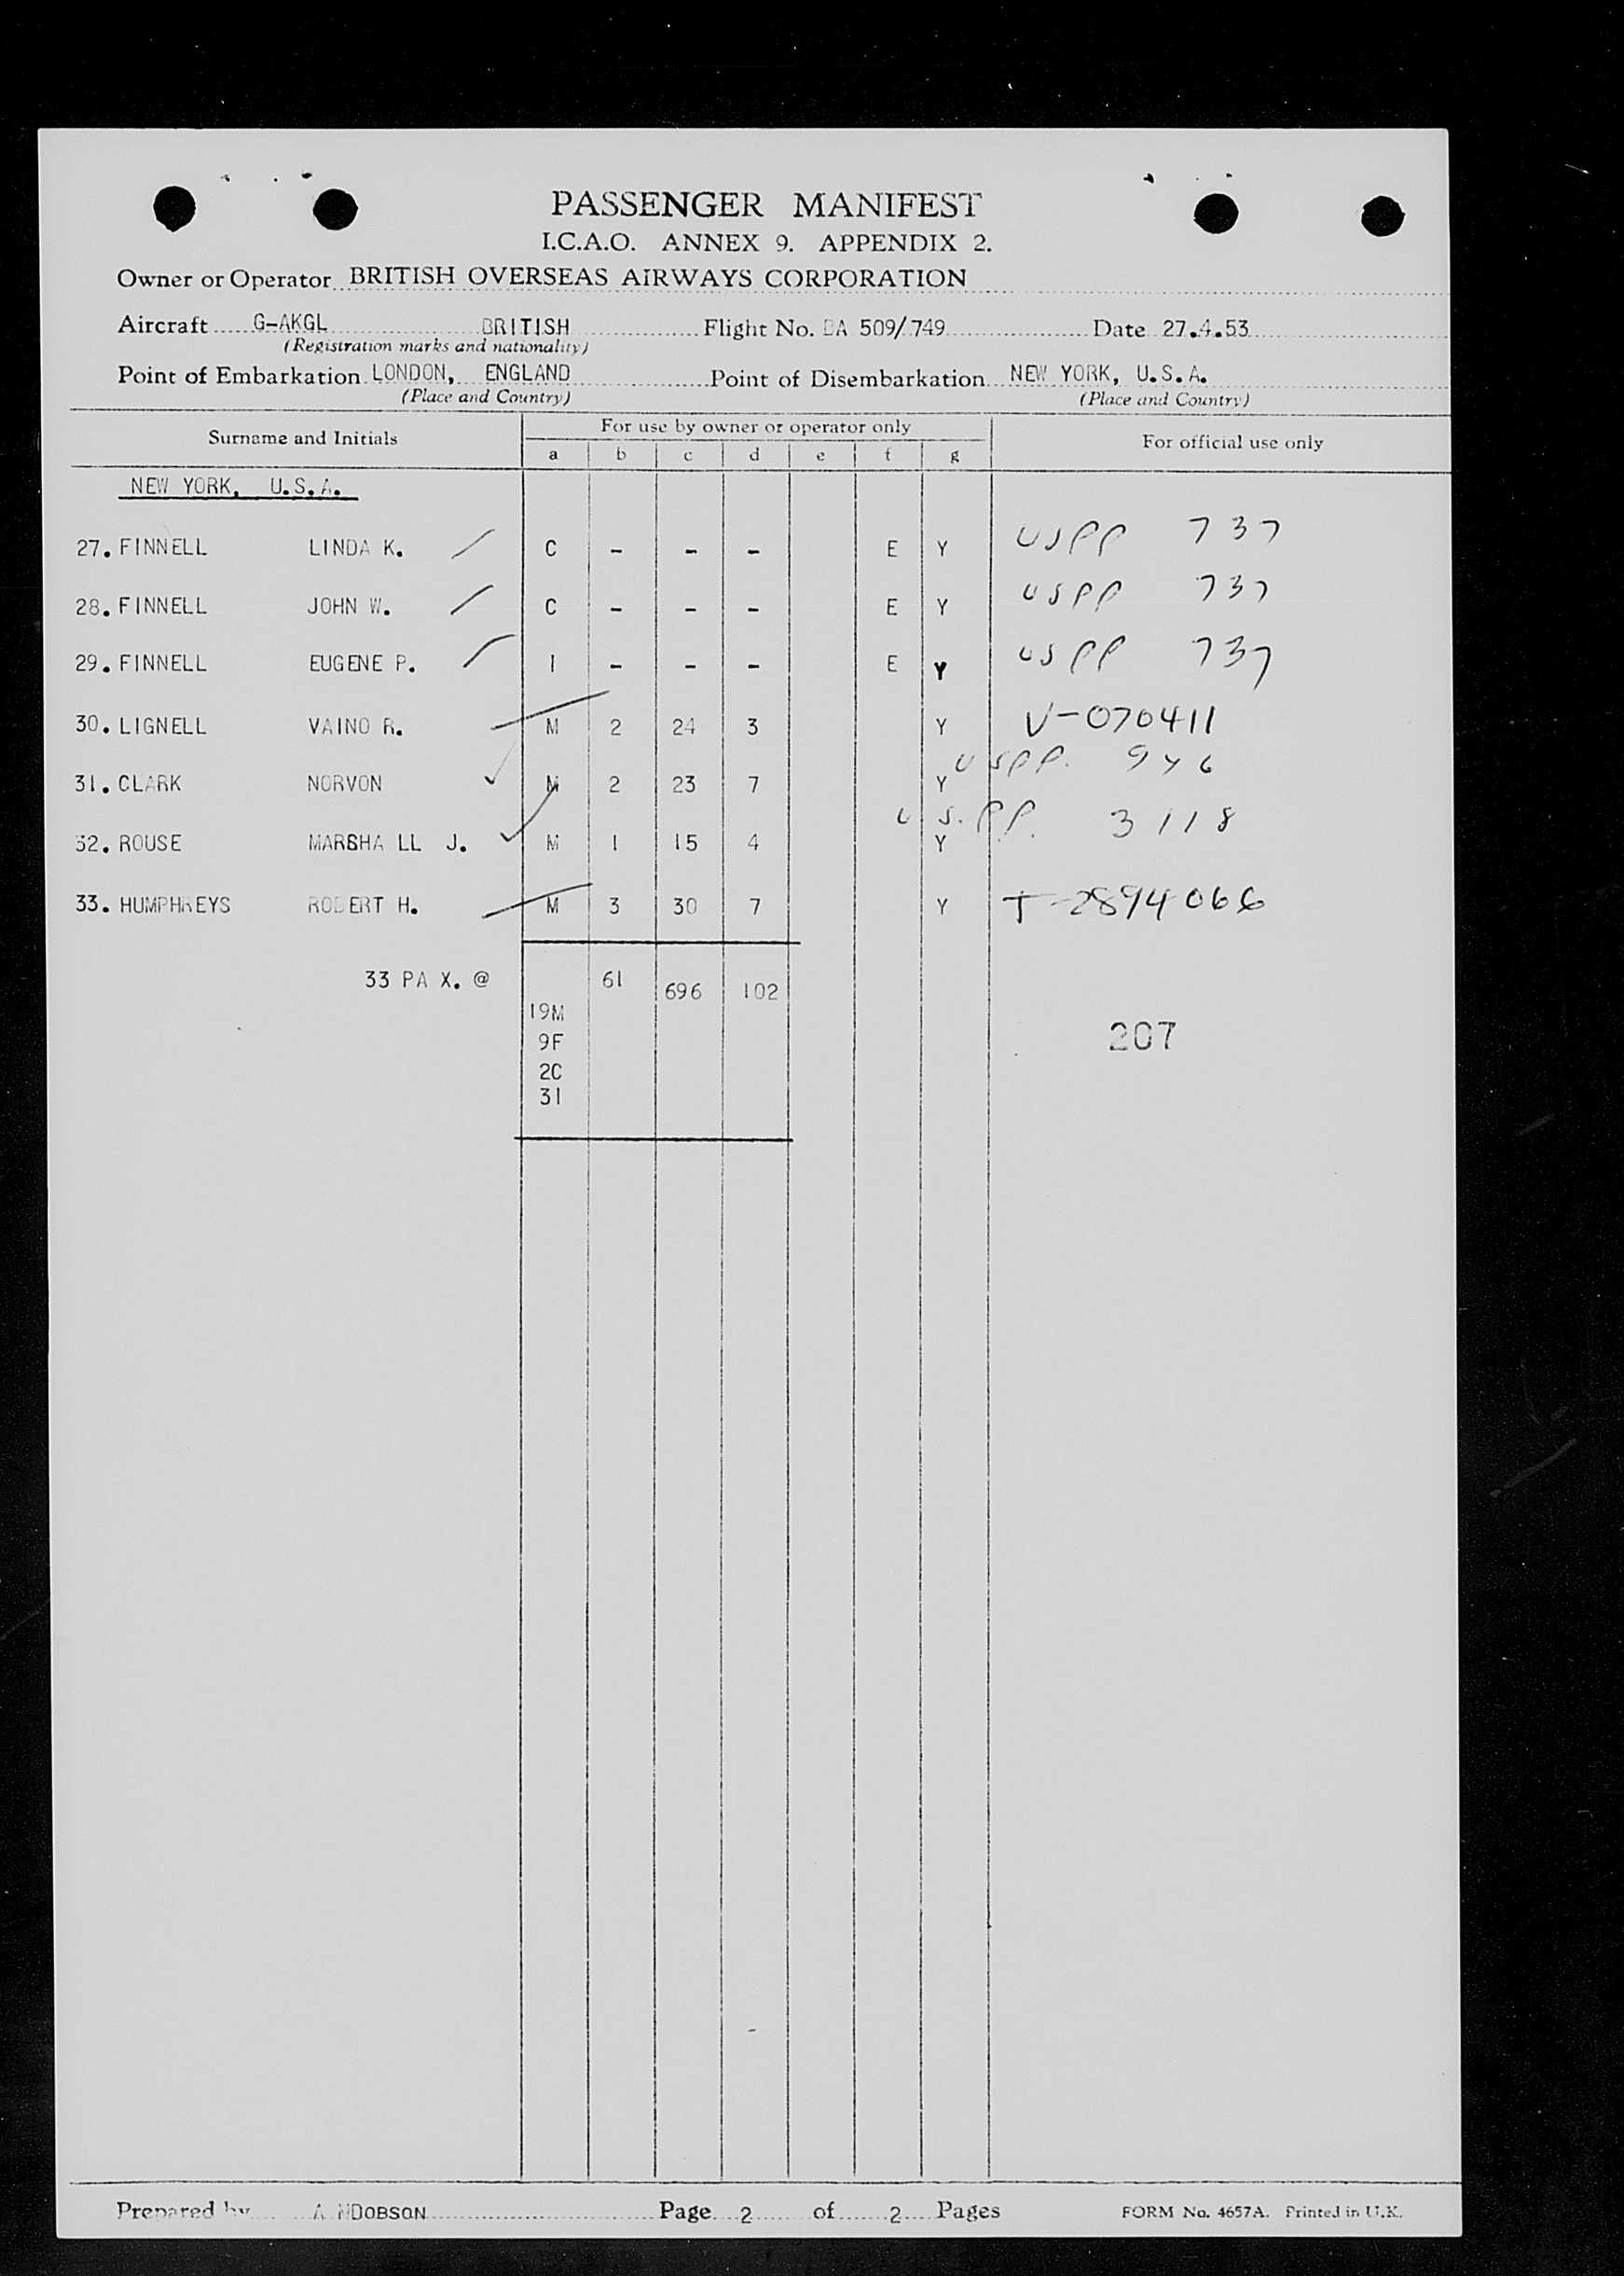 PASSENGER MANIFEST
I.C.A.O. ANNEX 9. APPENDIX 2.
Owner or Operator BRITISH OVERSEAS AIRWAYS CORPORATION
Aircraft G-AKGL BRITISH Flight No. BA 509/749 Date 27.4.53
(Registration marks and nationality)
Point of Embarkation LONDON, ENGLAND Point of Disembarkation NEW YORK, U.S.A.
(Place and Country) (Place and Country)
Surname and Initials For use by owner or operator only For official use only
a b c d e f g
NEW YORK, U.S.A.
27. FINNELL LINDA K. C - - - E Y USPP 737
28. FINNELL JOHN W. C - - - E Y USPP 737
29. FINNELL EUGENE P. I - - - E Y USPP 737
30. LIGNELL VAINO R. M 2 24 3 Y V-070411
31. CLARK NORVON M 2 23 7 Y USPP. 946
32. ROUSE MARSHA LL J. M 1 15 4 Y U.S.PP. 3118
33. HUMPHREYS ROBERT H. M 3 30 7 Y T-2894066
33 PA X. @ 61 696 102
19M
9F
2C
3I
207
Prepared by A NDOBSON Page 2 of 2 Pages FORM No. 4657A. Printed in U.K.